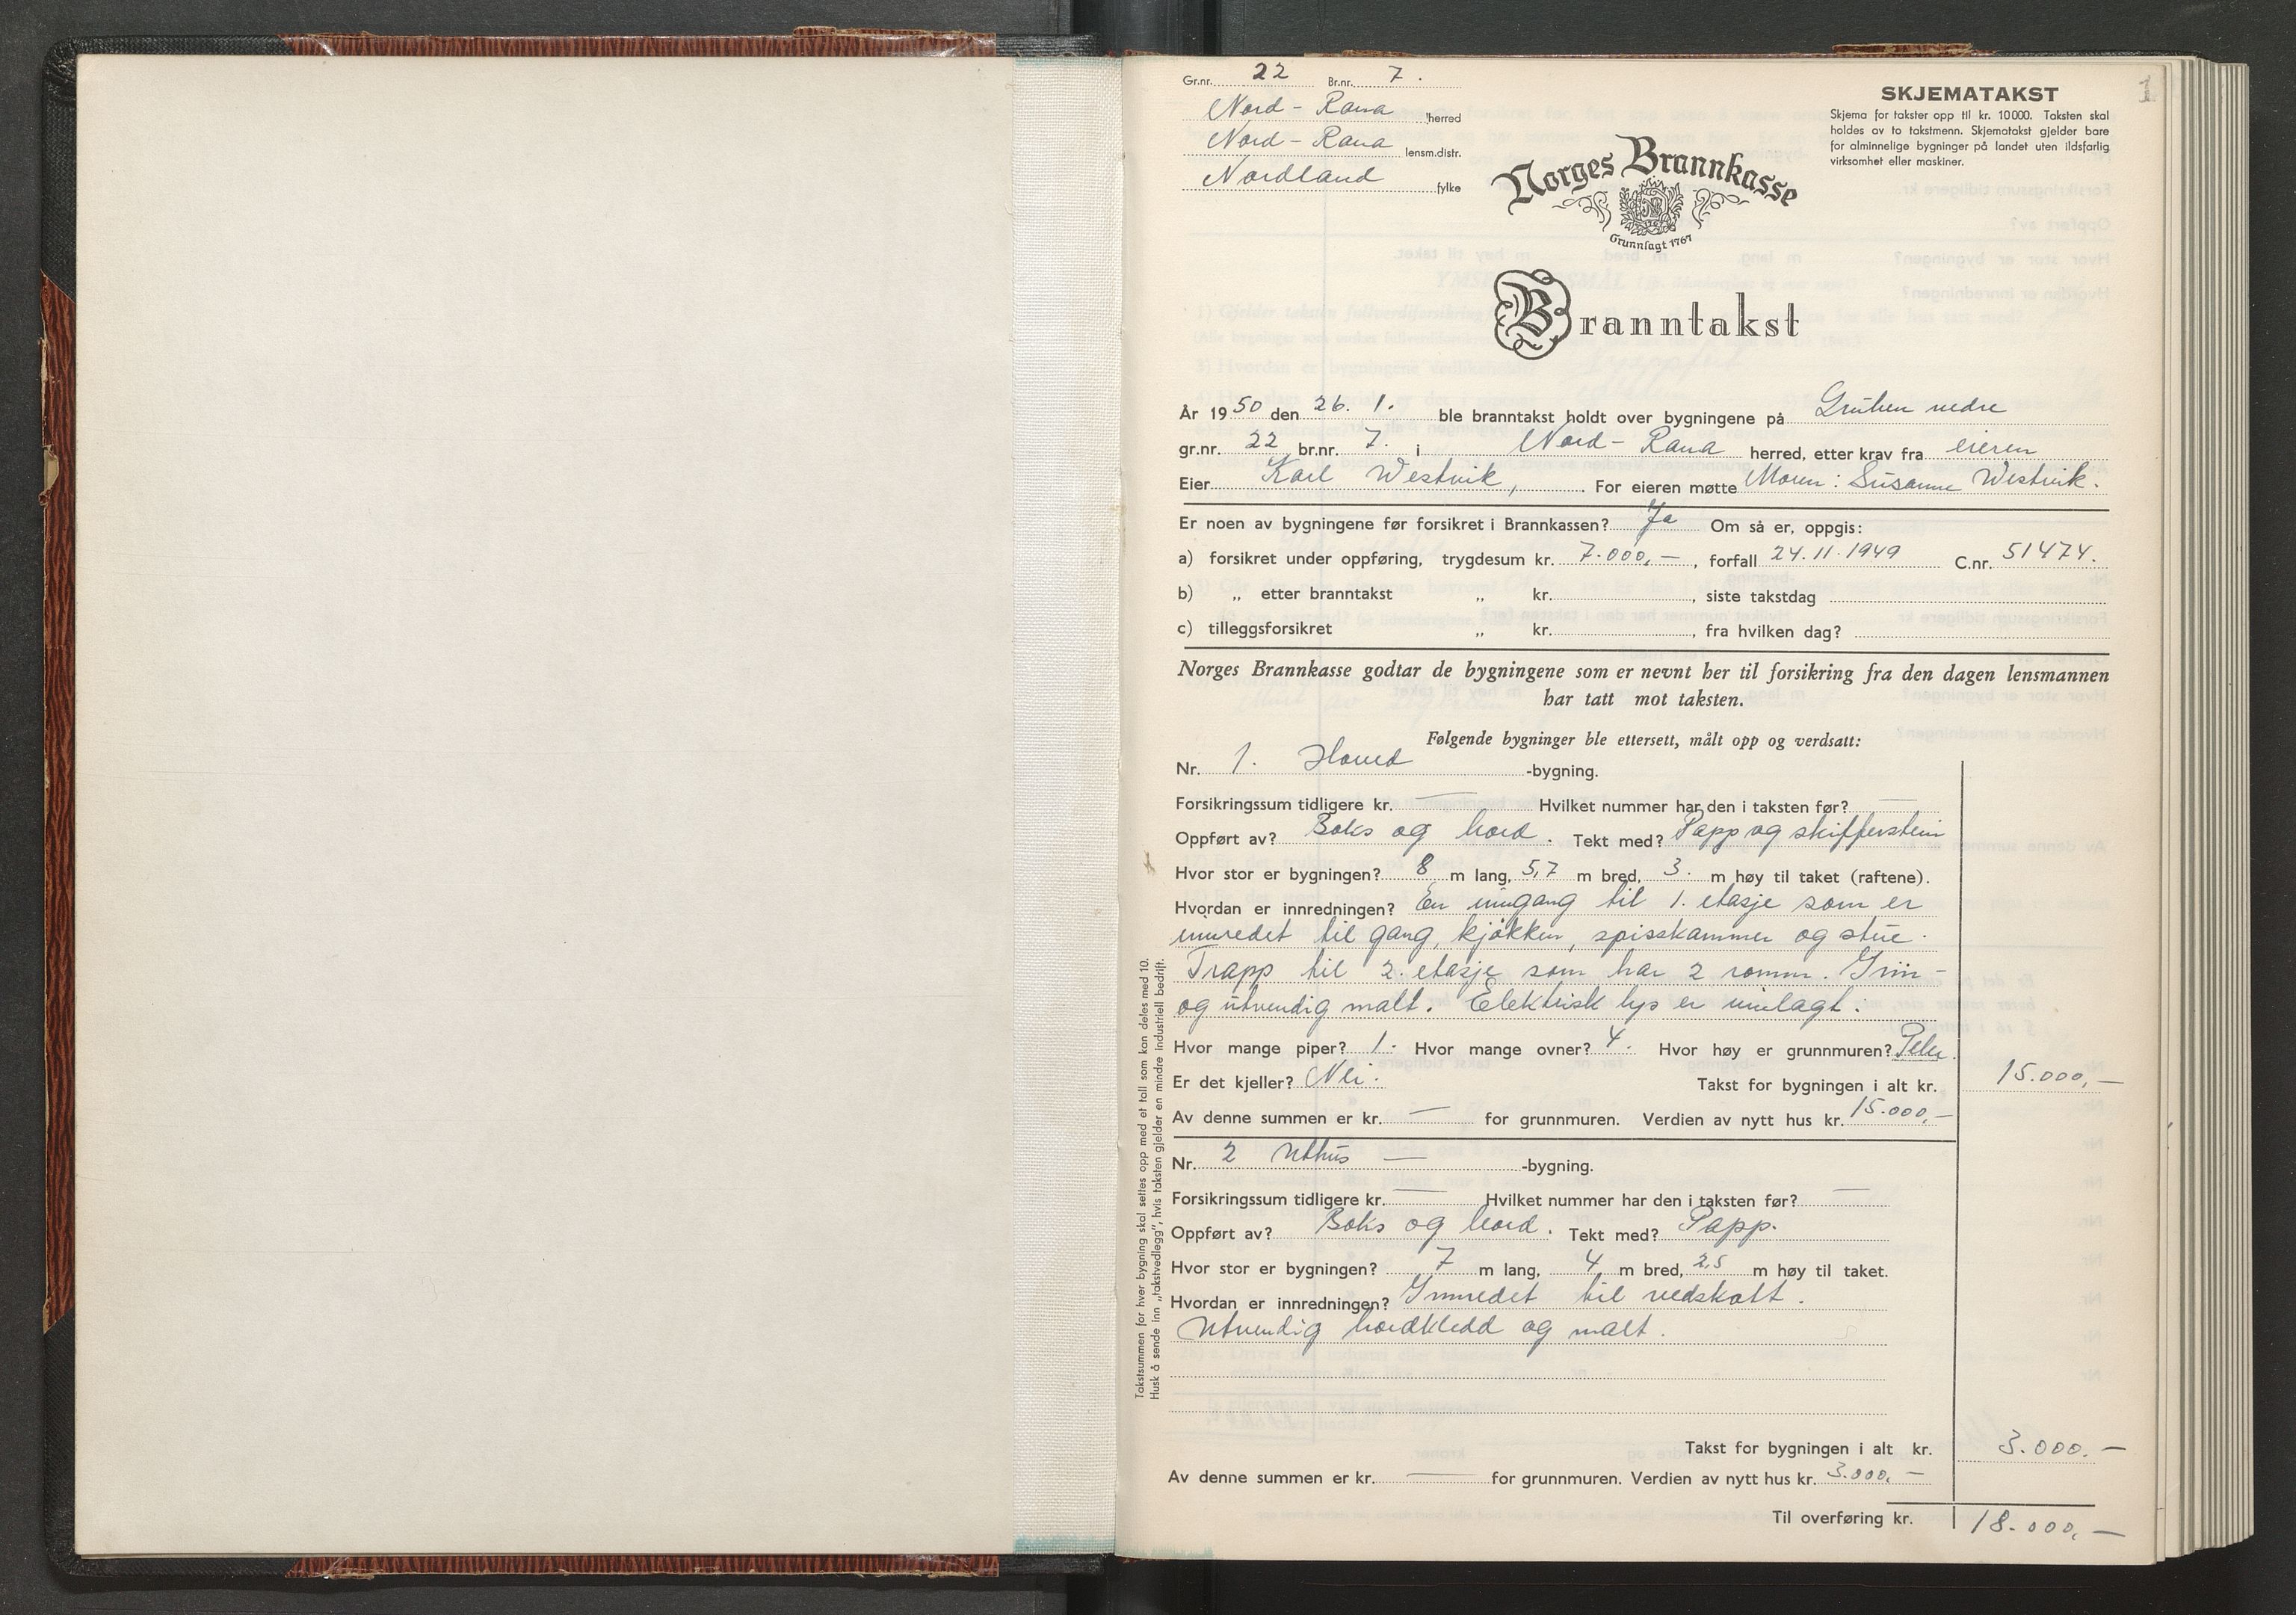 1
Gr.nr. 22 Br.nr. 7.
Nord - Rana herred
Nord - Rana lensm.distr.
Nordland fylke
SKJEMATAKST
Skjema for takster opp til kr. 10000. Taksten skal
holdes av to takstmenn. Skjematakst gjelder bare
for alminnelige bygninger på landet uten ildsfarlig
virksomhet eller maskiner.
Norges Brannkasse
Grunnlagt 1767
Branntakst
År 1950 den 26. 1. ble branntakst holdt over bygningene på Gruben nedre
gr.nr. 22 br.nr. 7. i Nord - Rana herred, etter krav fra eieren
Eier Karl Westvik, For eieren møtte Moren: Susanne Westvik.
Er noen av bygningene før forsikret i Brannkassen? Ja Om så er, oppgis:
a) forsikret under oppføring, trygdesum kr. 7.000,— , forfall 24.11.1949 C.nr. 51474.
b) „ etter branntakst „ kr. , siste takstdag
c) tilleggsforsikret „ kr. , fra hvilken dag?
Norges Brannkasse godtar de bygningene som er nevnt her til forsikring fra den dagen lensmannen
har tatt mot taksten.
Følgende bygninger ble ettersett, målt opp og verdsatt:
Nr. 1. Hoved -bygning.
Forsikringssum tidligere kr. — Hvilket nummer har den i taksten før? —
Oppført av? Boks og bord. Tekt med? Papp og skifferstein
Hvor stor er bygningen? 8 m lang, 5,7 m bred, 3. m høy til taket (raftene).
Hvordan er innredningen? En inngang til 1. etasje som er
innredet til gang, kjøkken, spisskammer og stue.
Trapp til 2. etasje som har 2 romm. Inn-
og utvendig malt. Elektrisk lys er innlagt.
Hvor mange piper? 1. Hvor mange ovner? 4. Hvor høy er grunnmuren? Peler.
Er det kjeller? Nei. Takst for bygningen i alt kr. 15.000,—
Av denne summen er kr. — for grunnmuren. Verdien av nytt hus kr. 15.000,—
Nr. 2 Uthus — -bygning.
Forsikringssum tidligere kr. — Hvilket nummer har den i taksten før? —
Oppført av? Boks og bord. Tekt med? Papp.
Hvor stor er bygningen? 7 m lang, 4 m bred, 2,5 m høy til taket.
Hvordan er innredningen? Innredet til vedskott.
Utvendig bordkledd og malt.
Takst for bygningen i alt kr. 3.000.—
Av denne summen er kr. — for grunnmuren. Verdien av nytt hus kr. 3.000,—
Til overføring kr. 18.000,—
Takstsummen for hver bygning skal settes opp med et tall som kan deles med 10.
Husk å sende inn „takstvedlegg", hvis taksten gjelder en mindre industriell bedrift.